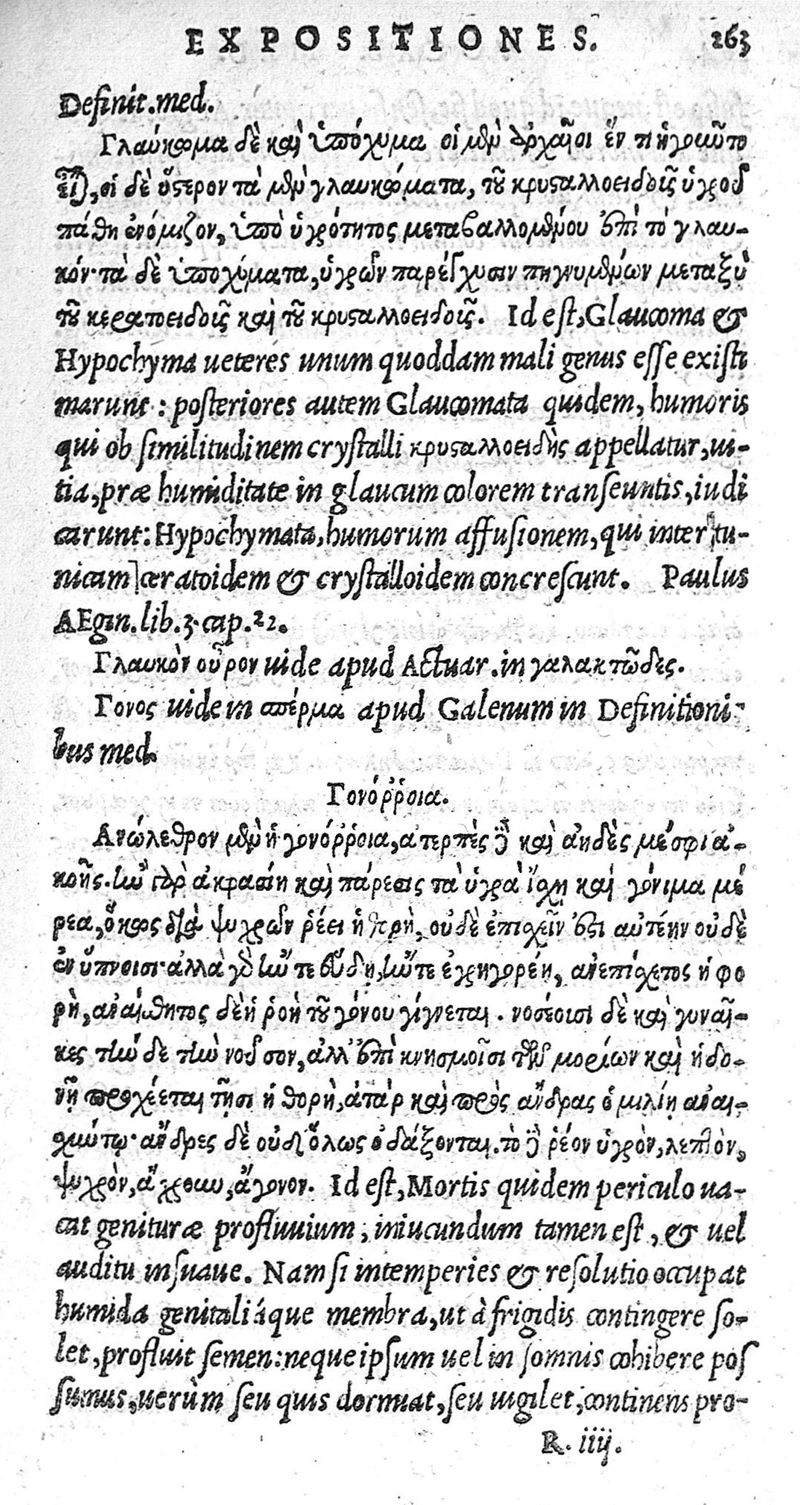 EXPOSITIONES. 263
Definit.med.
Γλαύκωμα δὲ καὶ ὑπόχυμα οἱ μὲν ἀρχαῖοι ἕν τι ἡγοῦντο
εἶναι, οἱ δὲ ὕστερον τὰ μὲν γλαυκώματα, τοῦ κρυσταλλοειδοῦς ὑγροῦ
πάθη ἐνόμιζον, ὑπὸ ὑγρότητος μεταβαλλομένου ἐπὶ τὸ γλαυ-
κόν· τὰ δὲ ὑποχύματα, ὑγρῶν παρέγχυσιν πηγνυμένων μεταξὺ
τοῦ κερατοειδοῦς καὶ τοῦ κρυσταλλοειδοῦς. Id est, Glaucoma &
Hypochyma ueteres unum quoddam mali genus esse existi
marunt: posteriores autem Glaucomata quidem, humoris
qui ob similitudinem crystalli κρυσταλλοειδὴς appellatur, ui-
tia, præ humiditate in glaucum colorem transeuntis, iudi
carunt: Hypochymata, humorum affusionem, qui inter tu-
nicam ceratoidem & crystalloidem concrescunt. Paulus
AEgin. lib. 3. cap. 22.
Γλαυκὸν οὖρον uide apud Actuar. in γαλακτῶδες.
Γονος uide in σπέρμα apud Galenum in Definitioni-
bus med.
Γονόῤῥοια.
Ανώλεθρον μὲν ἡ γονόῤῥοια, ἀτερπὲς δὲ καὶ ἀηδὲς μέσφι ἀ-
κοῆς. ἢν γὰρ ἀκρασίη καὶ πάρεσις τὰ ὑγρὰ ἴσχῃ καὶ γόνιμα μέ
ρεα, ὅκως διὰ ψυχρῶν ῥέει ἡ θορὴ, οὐδὲ ἐπισχεῖν ἔστι αὐτέην οὐδὲ
ἐν ὕπνοισι· ἀλλὰ γὰρ ἤν τε εὕδῃ, ἤν τε ἐγρηγορέῃ, ἀνεπίσχετος ἡ φο
ρὴ, ἀναίσθητος δὲ ἡ ῥοὴ τοῦ γόνου γίγνεται. νοσέουσι δὲ καὶ γυναῖ-
κες τὴν δε τὴν νοῦσον, ἀλλ' ἐπὶ κνησμοῖσι τῶν μορίων καὶ ἡδο-
νῇ προχέεται τῇσι ἡ θορὴ, ἀτὰρ καὶ πρὸς ἄνδρας ὁμιλίῃ ἀναι-
σχύντῳ· ἄνδρες δὲ οὐδ' ὅλως ὀδάξονται. τὸ δὲ ῥέον ὑγρὸν, λεπτὸν,
ψυχρὸν, ἄχροον, ἄγονον. Id est, Mortis quidem periculo ua-
cat genituræ profluuium, iniucundum tamen est, & uel
auditu insuaue. Nam si intemperies & resolutio occupat
humida genitaliáque membra, ut à frigidis contingere so-
let, profluit semen: neque ipsum uel in somnis cohibere pos
sumus, uerùm seu quis dormiat, seu uigilet, continens pro-
R. iiij.